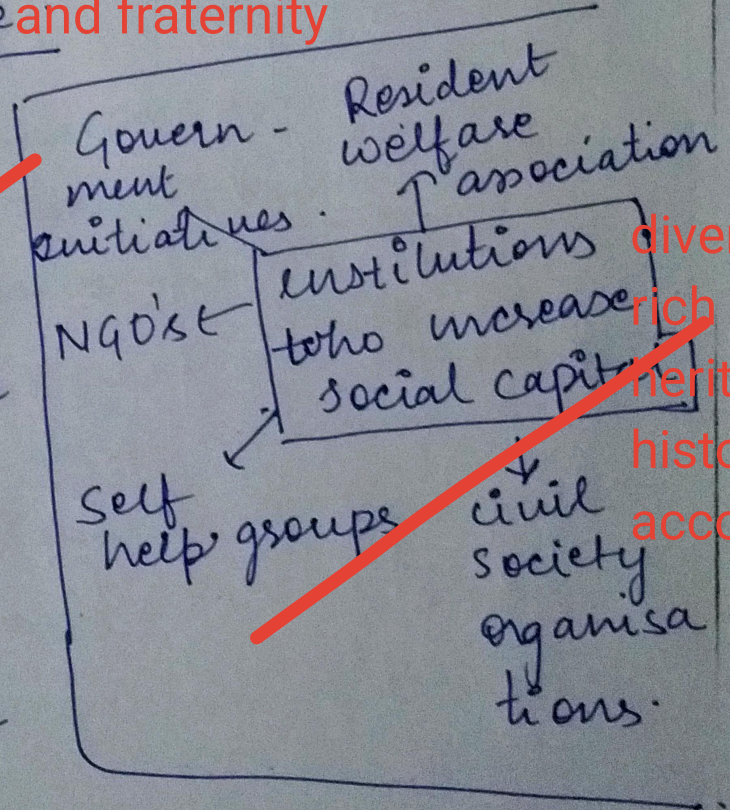 and fraternity
Govern-
ment
initiatives.
Resident
welfare
association
institutions
who increase
social capital
NGO's
Self
help groups
civil
society
organisa
tions.
rich